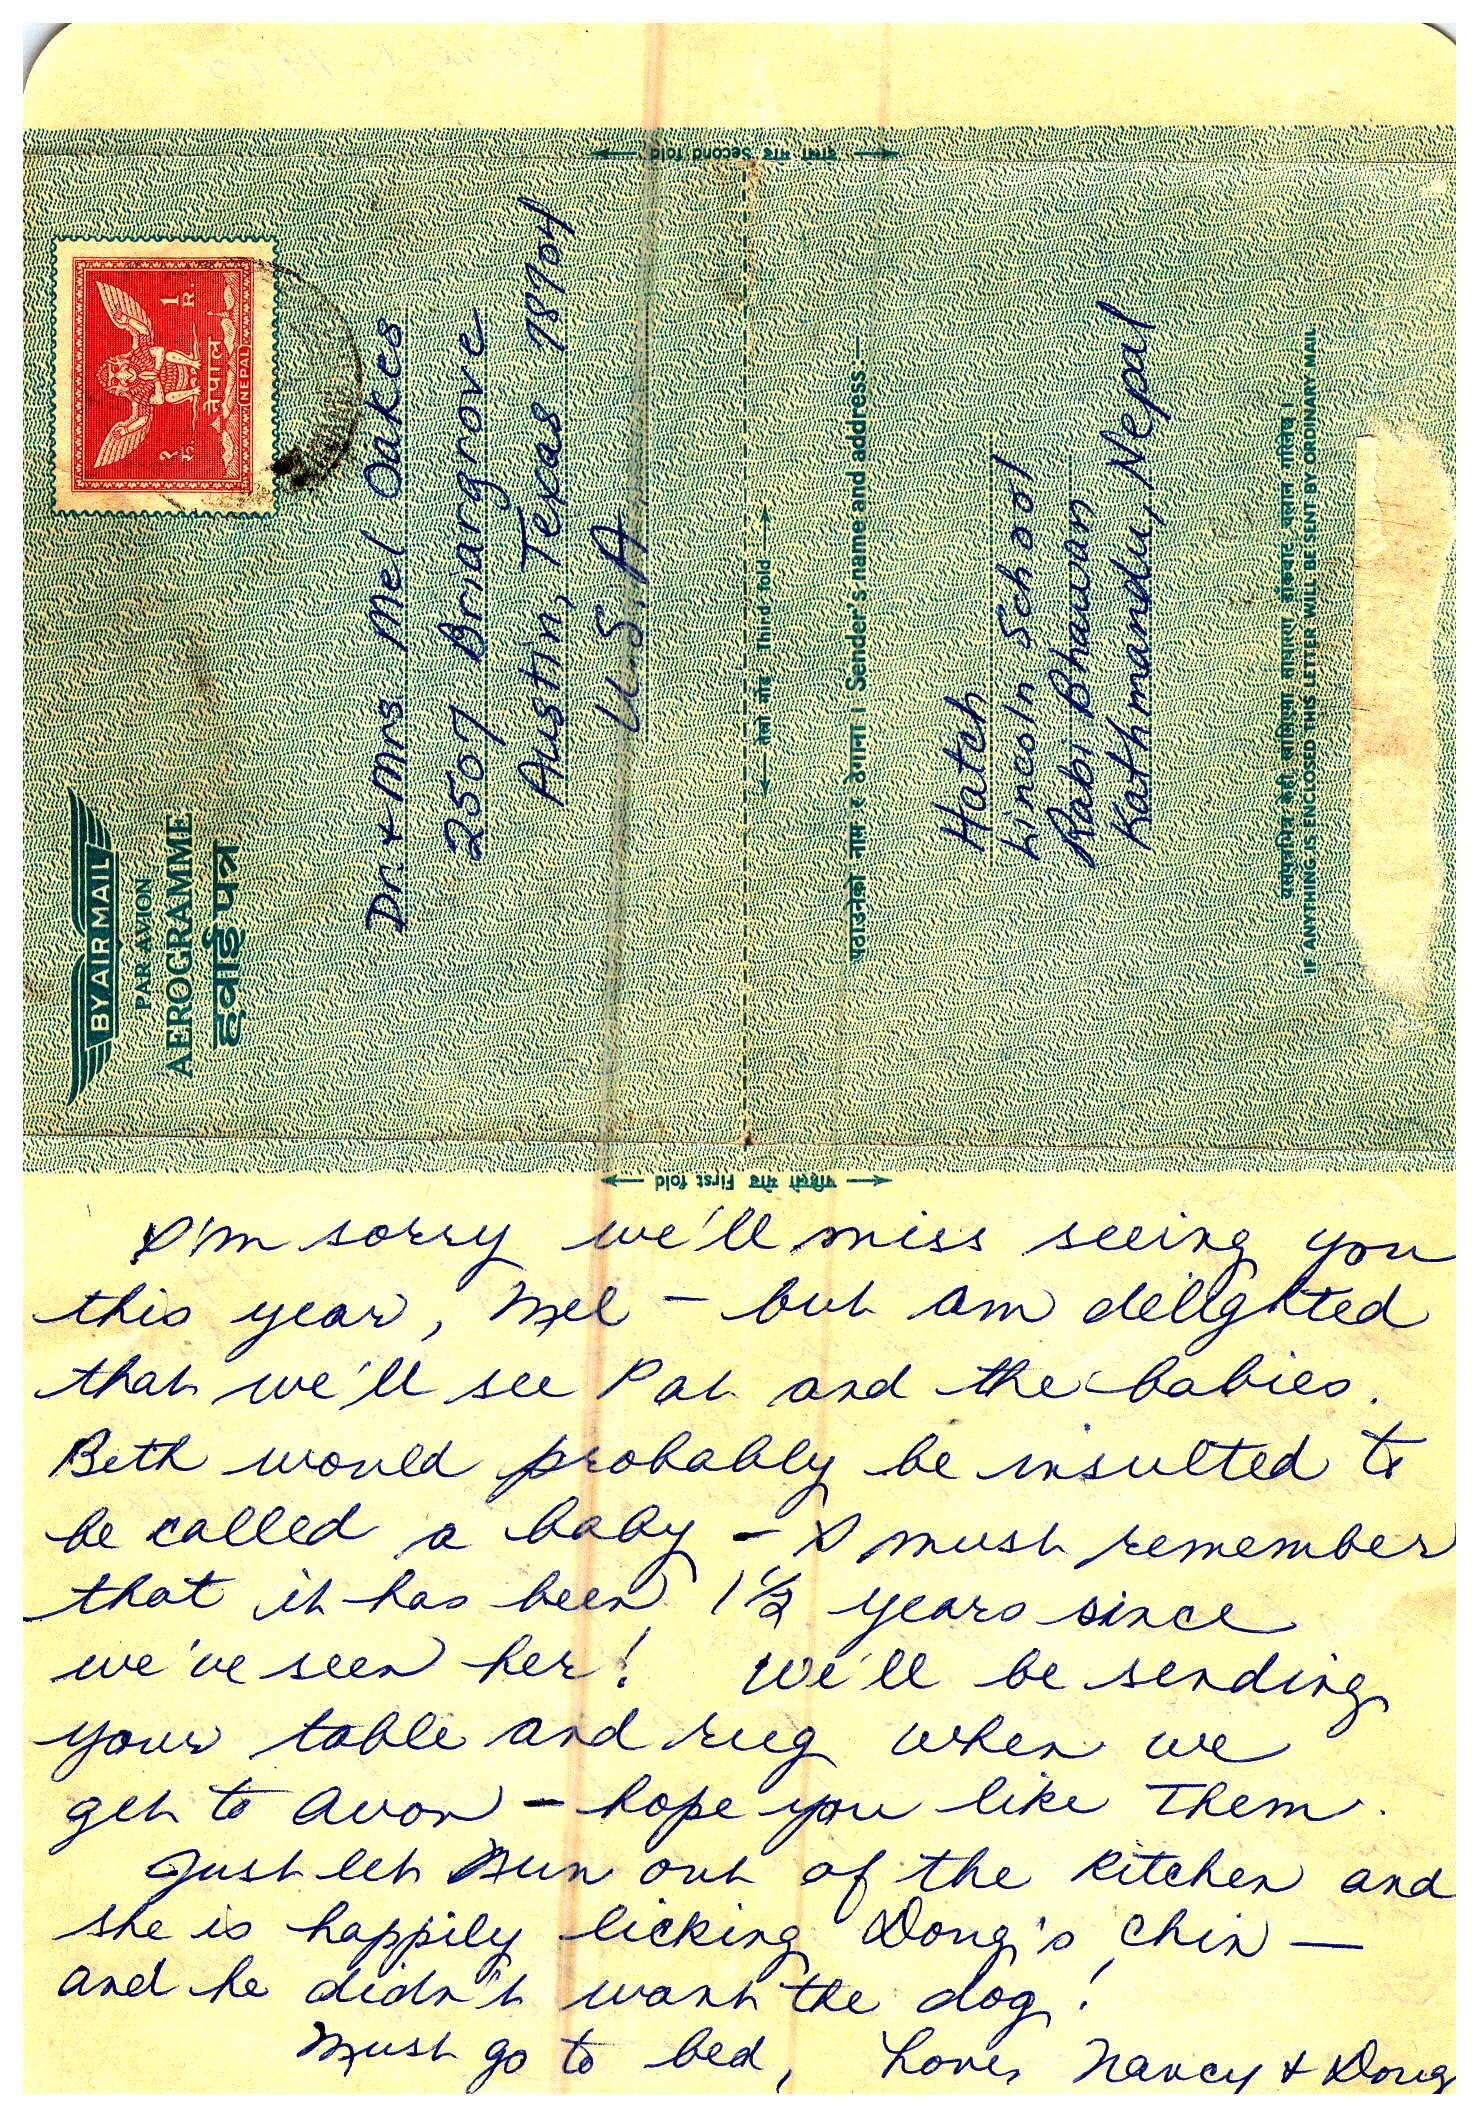 दोस्रो मोड Second fold
१ रु.
नेपाल
(NEPAL)
1 R.
BY AIR MAIL
PAR AVION
AEROGRAMME
हवाई पत्र
Dr. + Mrs. Mel Oakes
2507 Briargrove
Austin, Texas 78704
U.S.A
तेस्रो मोड Third fold
पठाउनेको नाम र ठेगाना । Sender's name and address:—
Hatch
Lincoln School
Rabi Bhawan
Kathmandu, Nepal
यसमुनि केही साधारण डाँकबाट चलान गरिनेछ ।
IF ANYTHING IS ENCLOSED THIS LETTER WILL BE SENT BY ORDINARY MAIL
पहिलो मोड First fold
I'm sorry we'll miss seeing you
this year, Mel — but am delighted
that we'll see Pat and the babies.
Beth would probably be insulted to
be called a baby — I must remember
that it has been 1½ years since
we've seen her! We'll be sending
your table and rug when we
get to Avon — hope you like them.
Just let Nun out of the kitchen and
she is happily licking Doug's chin —
and he didn't want the dog!
Must go to bed, Love, Nancy + Doug